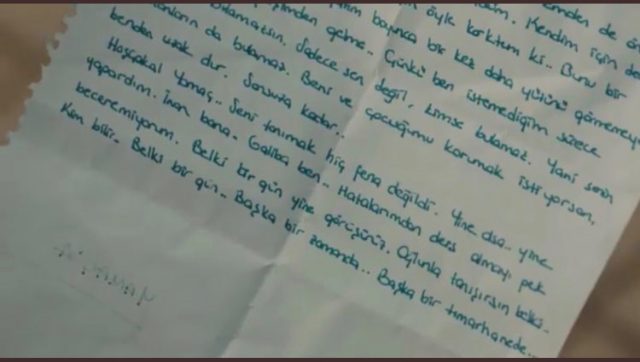 den de ö
Kendim için de
öyle korktum ki.. Bunu bir
boyunca bir kez daha yüzünü görmemeye
gelme.. Çünkü ben istemediğim sürece
bulamazsın. Sadece sen değil, kimse bulamaz. Yani senin
da bulamaz. Beni ve çocuğumu korumak istiyorsan,
benden uzak dur. Sonsuza kadar..
Hoşçakal Yamaç.. Seni tanımak hiç fena değildi. Yine olsa.. yine
yapardım. İnan bana. Galiba ben.. Hatalarımdan ders almayı pek
beceremiyorum. Belki bir gün yine görüşürüz. Oğlunla tanışırsın belki..
Kim bilir.. Belki bir gün.. Başka bir zamanda.. Başka bir tımarhanede...